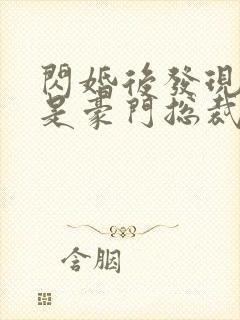 閃婚後發現
是豪門總裁
含胭